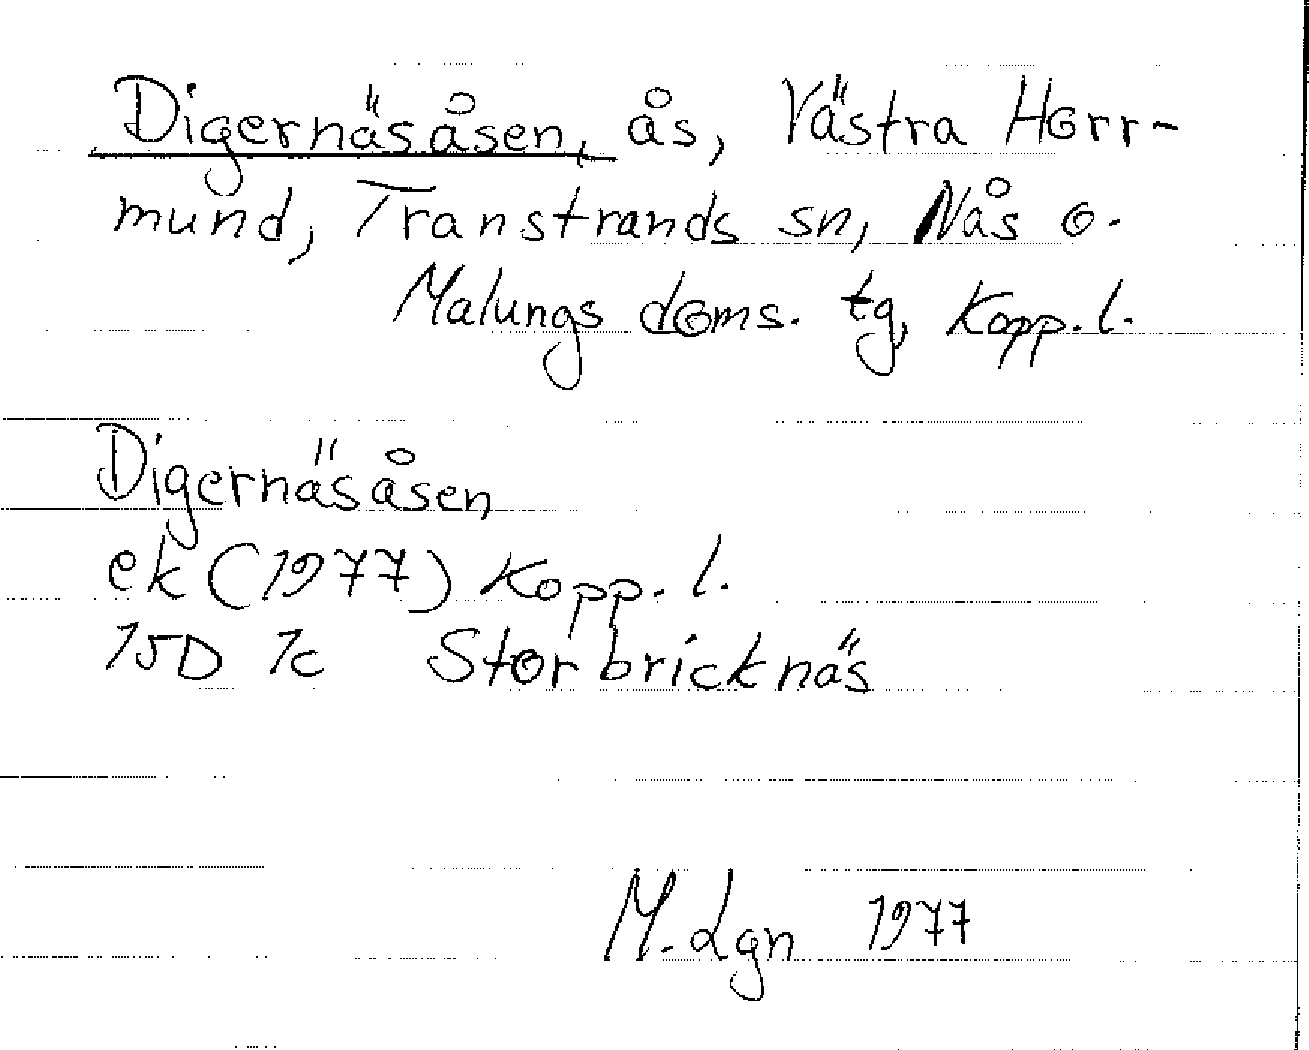 Digernäsåsen, ås, Västra Horr-
mund, Transtrands sn, Nås o.
Malungs doms. tg, Kopp. l.
Digernäsåsen
ek (1977) Kopp. l.
15D 7c Storbricknäs
M. Lgn 1977